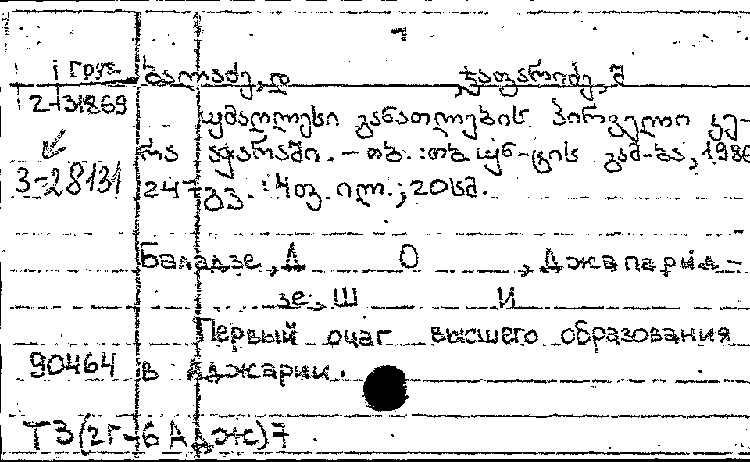 1 Груз.
ბალაძე, დ ჯაფარიძე, შ
2-131869
უმაღლესი განათლების პირველი კე-
რა აჭარაში. – თბ.: თბ. უნ-ტის გამ-ბა, 1980
3-28131
247 გვ.: 4 ფ. ილ.; 20 სმ.
Баладзе, Д О , Джапарид-
зе, Ш И
Первый очаг высшего образования
90464 в Аджарии.
Т3(2Г-6Адж)7